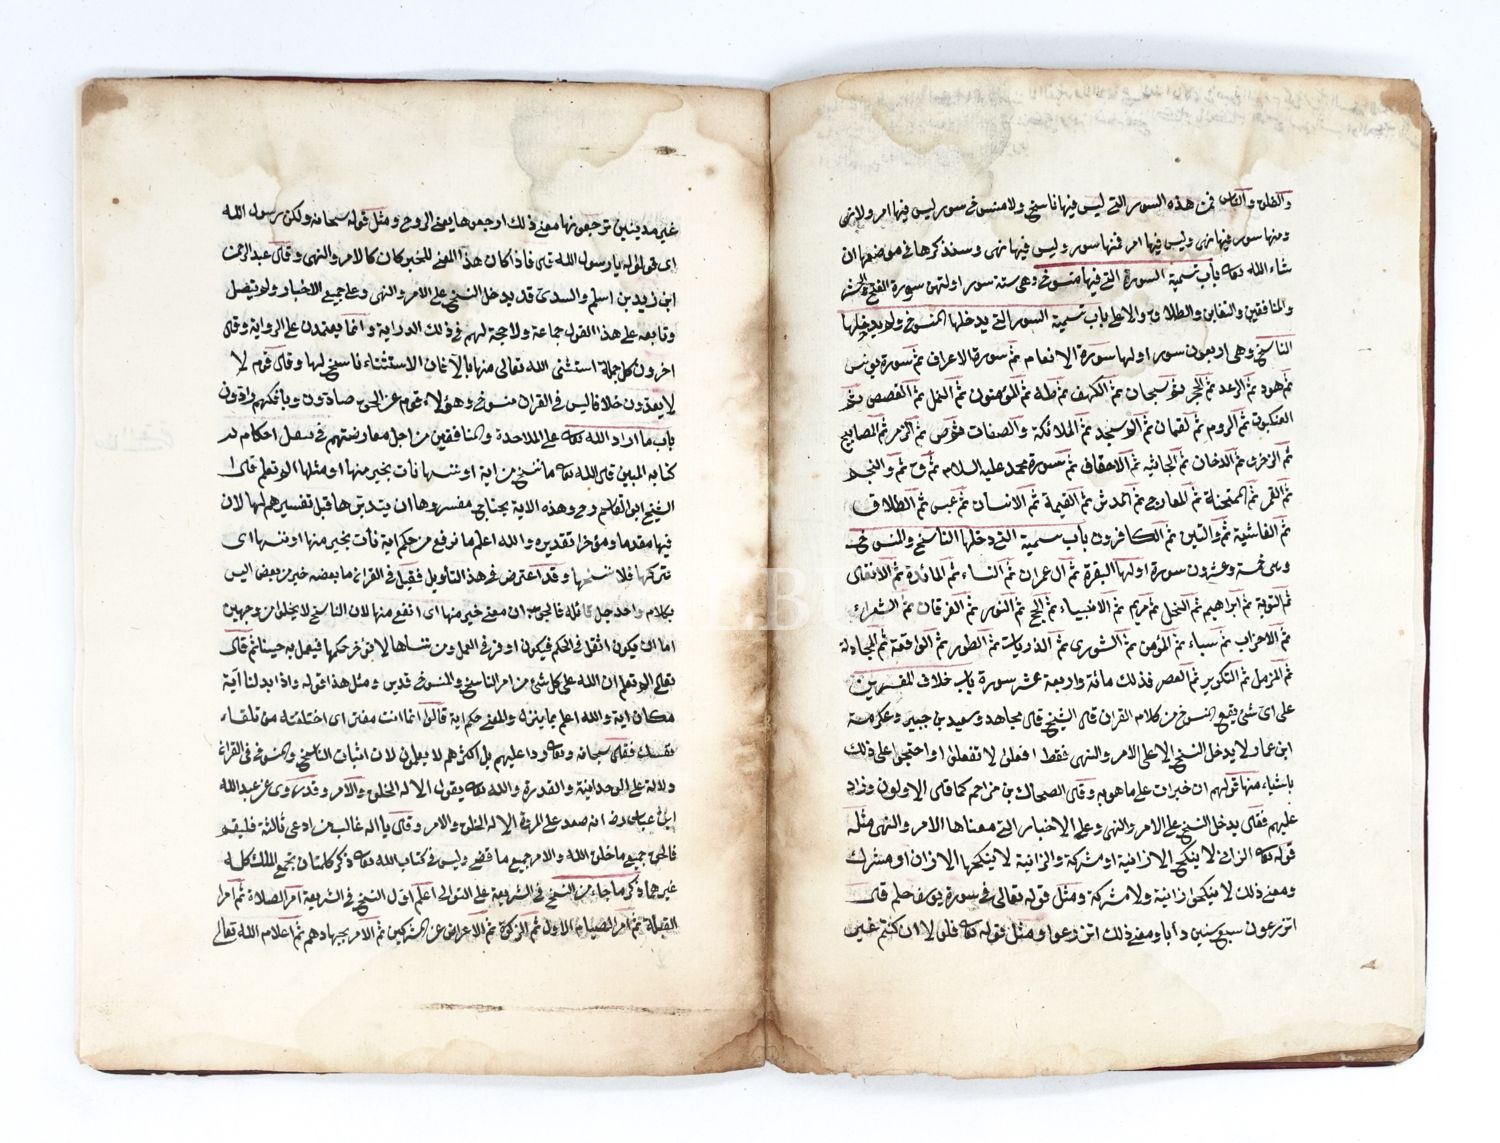 والفلق والناس فمن هذه السور التي ليس فيها ناسخ ولا منسوخ سور ليس فيها امر ولا نهي
ومنها سور فيها نهي وليس فيها امر فمنها سور وليس فيها نهي وسنذكرها في موضعها ان
شاء الله تعالى باب تسمية السورة التي فيها منسوخ وهي ستة سور اولهن سورة الفتح ثم الحشر
والمنافقين والتغابن والطلاق والاعلى باب تسمية السور التي يدخلها المنسوخ ولم يدخلها
الناسخ وهي اربعون سور اولها سورة الانعام ثم سورة الاعراف ثم سورة يونس
ثم هود ثم الرعد ثم الحجر ثم سبحان ثم الكهف ثم طه ثم المؤمنون ثم النمل ثم القصص ثم
العنكبوت ثم الروم ثم لقمان ثم السجدة ثم الملائكة والصافات ثم ص ثم الزمر ثم المصابيح
ثم الزخرف ثم الدخان ثم الجاثيه ثم الاحقاف ثم سورة محمد عليه السلام ثم ق ثم والنجم
ثم القمر ثم الممتحنة ثم المعارج ثم المدثر ثم القيمة ثم الانسان ثم عبس ثم الطلاق
ثم الغاشية ثم والتين ثم الكافرون باب تسمية التي دخلها الناسخ والمنسوخ
وهي خمسة وعشرون سورة اولها البقرة ثم ال عمران ثم النساء ثم المائدة ثم الانفال
ثم التوبة ثم ابراهيم ثم النحل ثم مريم ثم الانبياء ثم الحج ثم النور ثم الفرقان ثم الشعراء
ثم الاحزاب ثم سباء ثم المؤمن ثم الشورى ثم الذاريات ثم الطور ثم الواقعة ثم المجادلة
ثم المزمل ثم التكوير ثم العصر فذلك مائة واربعة عشر سورة باب خلاف المفسرين
على اي شئ يقع النسوخ من كلام القران قال الشيخ قال مجاهد وسعيد بن جبير وعكرمة
ابن عمار لا يدخل النسخ الا على الامر والنهي فقط افعلوا لا تفعلوا او احتجوا على ذلك
باشياء منها قولهم ان خبر الله على ما هو به وقال الضحاك بن مزاحم كما قال الاولون وزاد
عليهم فقال يدخل النسخ على الامر والنهي وعلى الاخبار التي معناها الامر والنهي مثله
قوله تعالى الزاني لا ينكح الا زانية او مشركة والزانية لا ينكحها الا زان او مشرك
ومعنى ذلك لا ينكحوا زانية ولا مشركة ومثل قوله تعالى في سورة يوسف حلم قال
اتزرعون سبع سنين دأبا ومعنى ذلك اتزرعوا ومثل قوله تعالى فلولا ان كنتم غير
غير مدينين ترجعونها معنى ذلك ارجعوها يعني الروح ومثل قوله سبحانه ولكن رسول الله
اي قولوا له يا رسول الله قال فاذا كان هذا المعنى للخبر كان كالامر والنهي وقال عبد الرحمن
ابن زيد بن اسلم والسدي قد يدخل النسخ على الامر والنهي وعلى جميع الاخبار ولم يفصل
وتابعه على هذا القول جماعة ولا حجة لهم في ذلك الدراية وانما يعتمدون على الرواية وقال
اخرون كل جملة استثنى الله تعالى منها بالا فان الاستثناء ناسخ لها وقال قوم لا
لا يعدون خلافا ليس في القران منسوخ وهؤلاء قوم عن الحق صادون وبافكهم رادون
باب ما اراد الله تعالى على الملاحدة والمنافقين من اجل معارضتهم في بعض احكام
كتابه المبين قال الله تعالى ما ننسخ من اية او ننسها نات بخير منها او مثلها الم تعلم قال ا
الشيخ ابو القاسم رح وهذه الاية يحتاج مفسروها ان يتدبرها قبل تفسيرهم لها لان
فيها مقدما ومؤخرا تقديره والله اعلم ما نرفع من حكم اية نات بخير منها او ننسها اي
نتركها فلا ننسخها وقد اعترض في هذا التأويل فقيل في القران ما بعضه خير من بعض اليس
بكلام واحد جل قائله فالجواب ان معنى خير منها اي انفع منها لان الناسخ لا يخلوا من وجهين
اما ان يكون اثقل في الحكم فيكون اوفر في العمل ومن ننساها الا نؤخر حكمها فيعمل به حينا ثم قال
تعالى الم تعلم ان الله على كل شئ من امر الناسخ والمنسوخ قدير ومثل هذا قوله واذا بدلنا آية
مكان اية والله اعلم بما ينزله والمعنى حكم اية قالوا انما انت مفتر اي اختلقته من تلقاء
نفسك فقال سبحانه وتعالى ردا عليهم بل اكثرهم لا يعلمون لان اثبات الناسخ والمنسوخ في القران
دلالة على الوحدانية والقدرة والله تعالى يقول الا له الخلق والامر وقد روى عن عبد الله
ابن عباس رض انه صعد على المروة الا له الخلق والامر وقال ياا له غالب من ادعى ثالثة فليقم
فالخلق جميع ما خلق الله والامر جميع ما قضى وليس في كتاب الله تعالى ذكر كلمتان بجمع الملك كله
غيرهما ذكر ما جاء من النسخ في الشريعة على التوالي اعلم اول النسخ في الشريعة امر الصلاة ثم امر
القبلة ثم امر الصيام الاول ثم الزكوة ثم الاعراض عن المشركين ثم الامر بجهادهم ثم اعلام الله تعالى